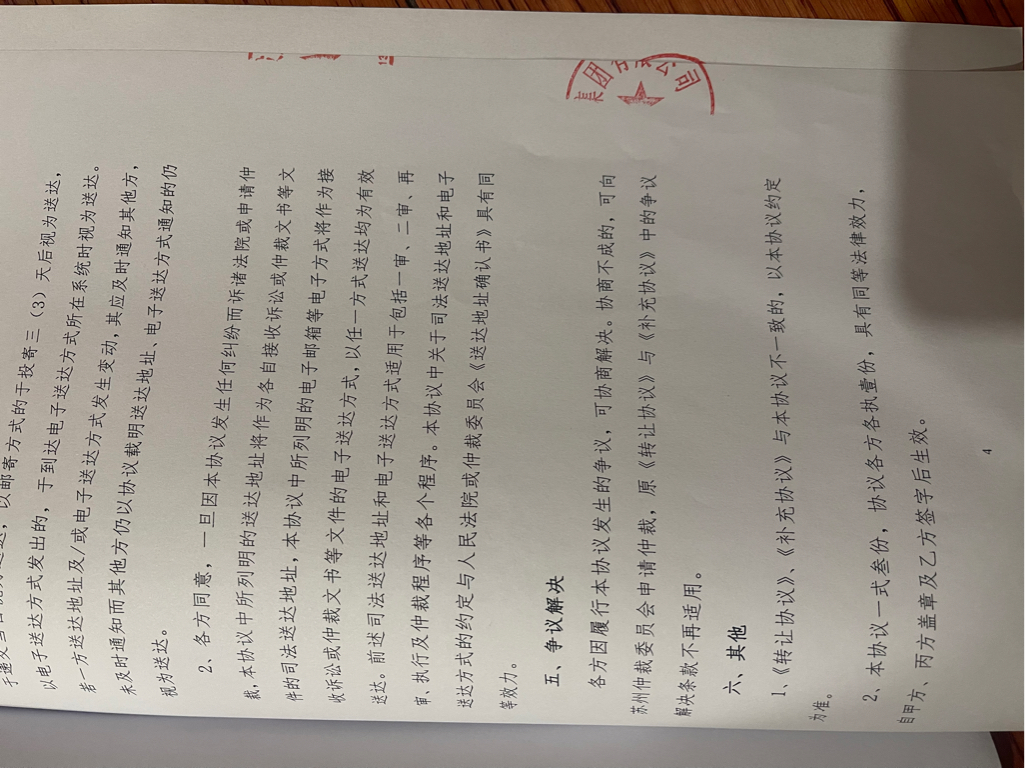 以邮寄方式的于投寄三（3）天后视为送达，
以电子送达方式发出的，于到达电子送达方式所在系统时视为送达。
若一方送达地址及/或电子送达方式发生变动，其应及时通知其他方，
未及时通知而其他方仍以协议载明送达地址、电子送达方式通知的仍
视为送达。
2、各方同意，一旦因本协议发生任何纠纷而诉诸法院或申请仲
裁，本协议中所列明的送达地址将作为各自接收诉讼或仲裁文书等文
件的司法送达地址，本协议中所列明的电子邮箱等电子方式将作为接
收诉讼或仲裁文书等文件的电子送达方式，以任一方式送达均为有效
送达。前述司法送达地址和电子送达方式适用于包括一审、二审、再
审、执行及仲裁程序等各个程序。本协议中关于司法送达地址和电子
送达方式的约定与人民法院或仲裁委员会《送达地址确认书》具有同
等效力。
五、争议解决
各方因履行本协议发生的争议，可协商解决。协商不成的，可向
苏州仲裁委员会申请仲裁，原《转让协议》与《补充协议》中的争议
解决条款不再适用。
六、其他
1、《转让协议》、《补充协议》与本协议不一致的，以本协议约定
为准。
2、本协议一式叁份，协议各方各执壹份，具有同等法律效力，
自甲方、丙方盖章及乙方签字后生效。
4
集团有限公司